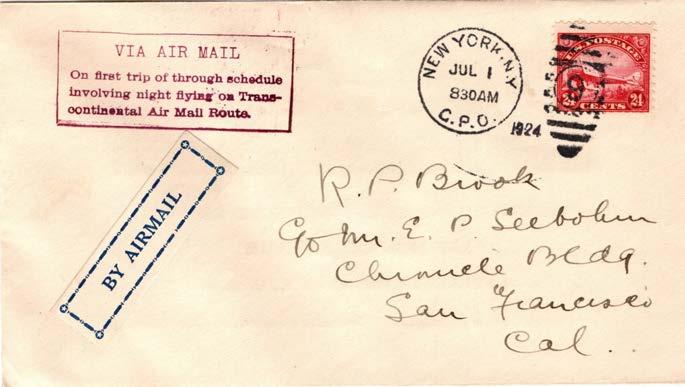 VIA AIR MAIL
On first trip of through schedule
involving night flying on Trans-
continental Air Mail Route.
NEW YORK, N.Y.
JUL 1
830AM
G.P.O.
1924
U.S. POSTAGE
24 CENTS 24
BY AIRMAIL
R. P. Brook
c/o Mr. E. P. Seebohm
Chronicle Bldg.
San Francisco
Cal.